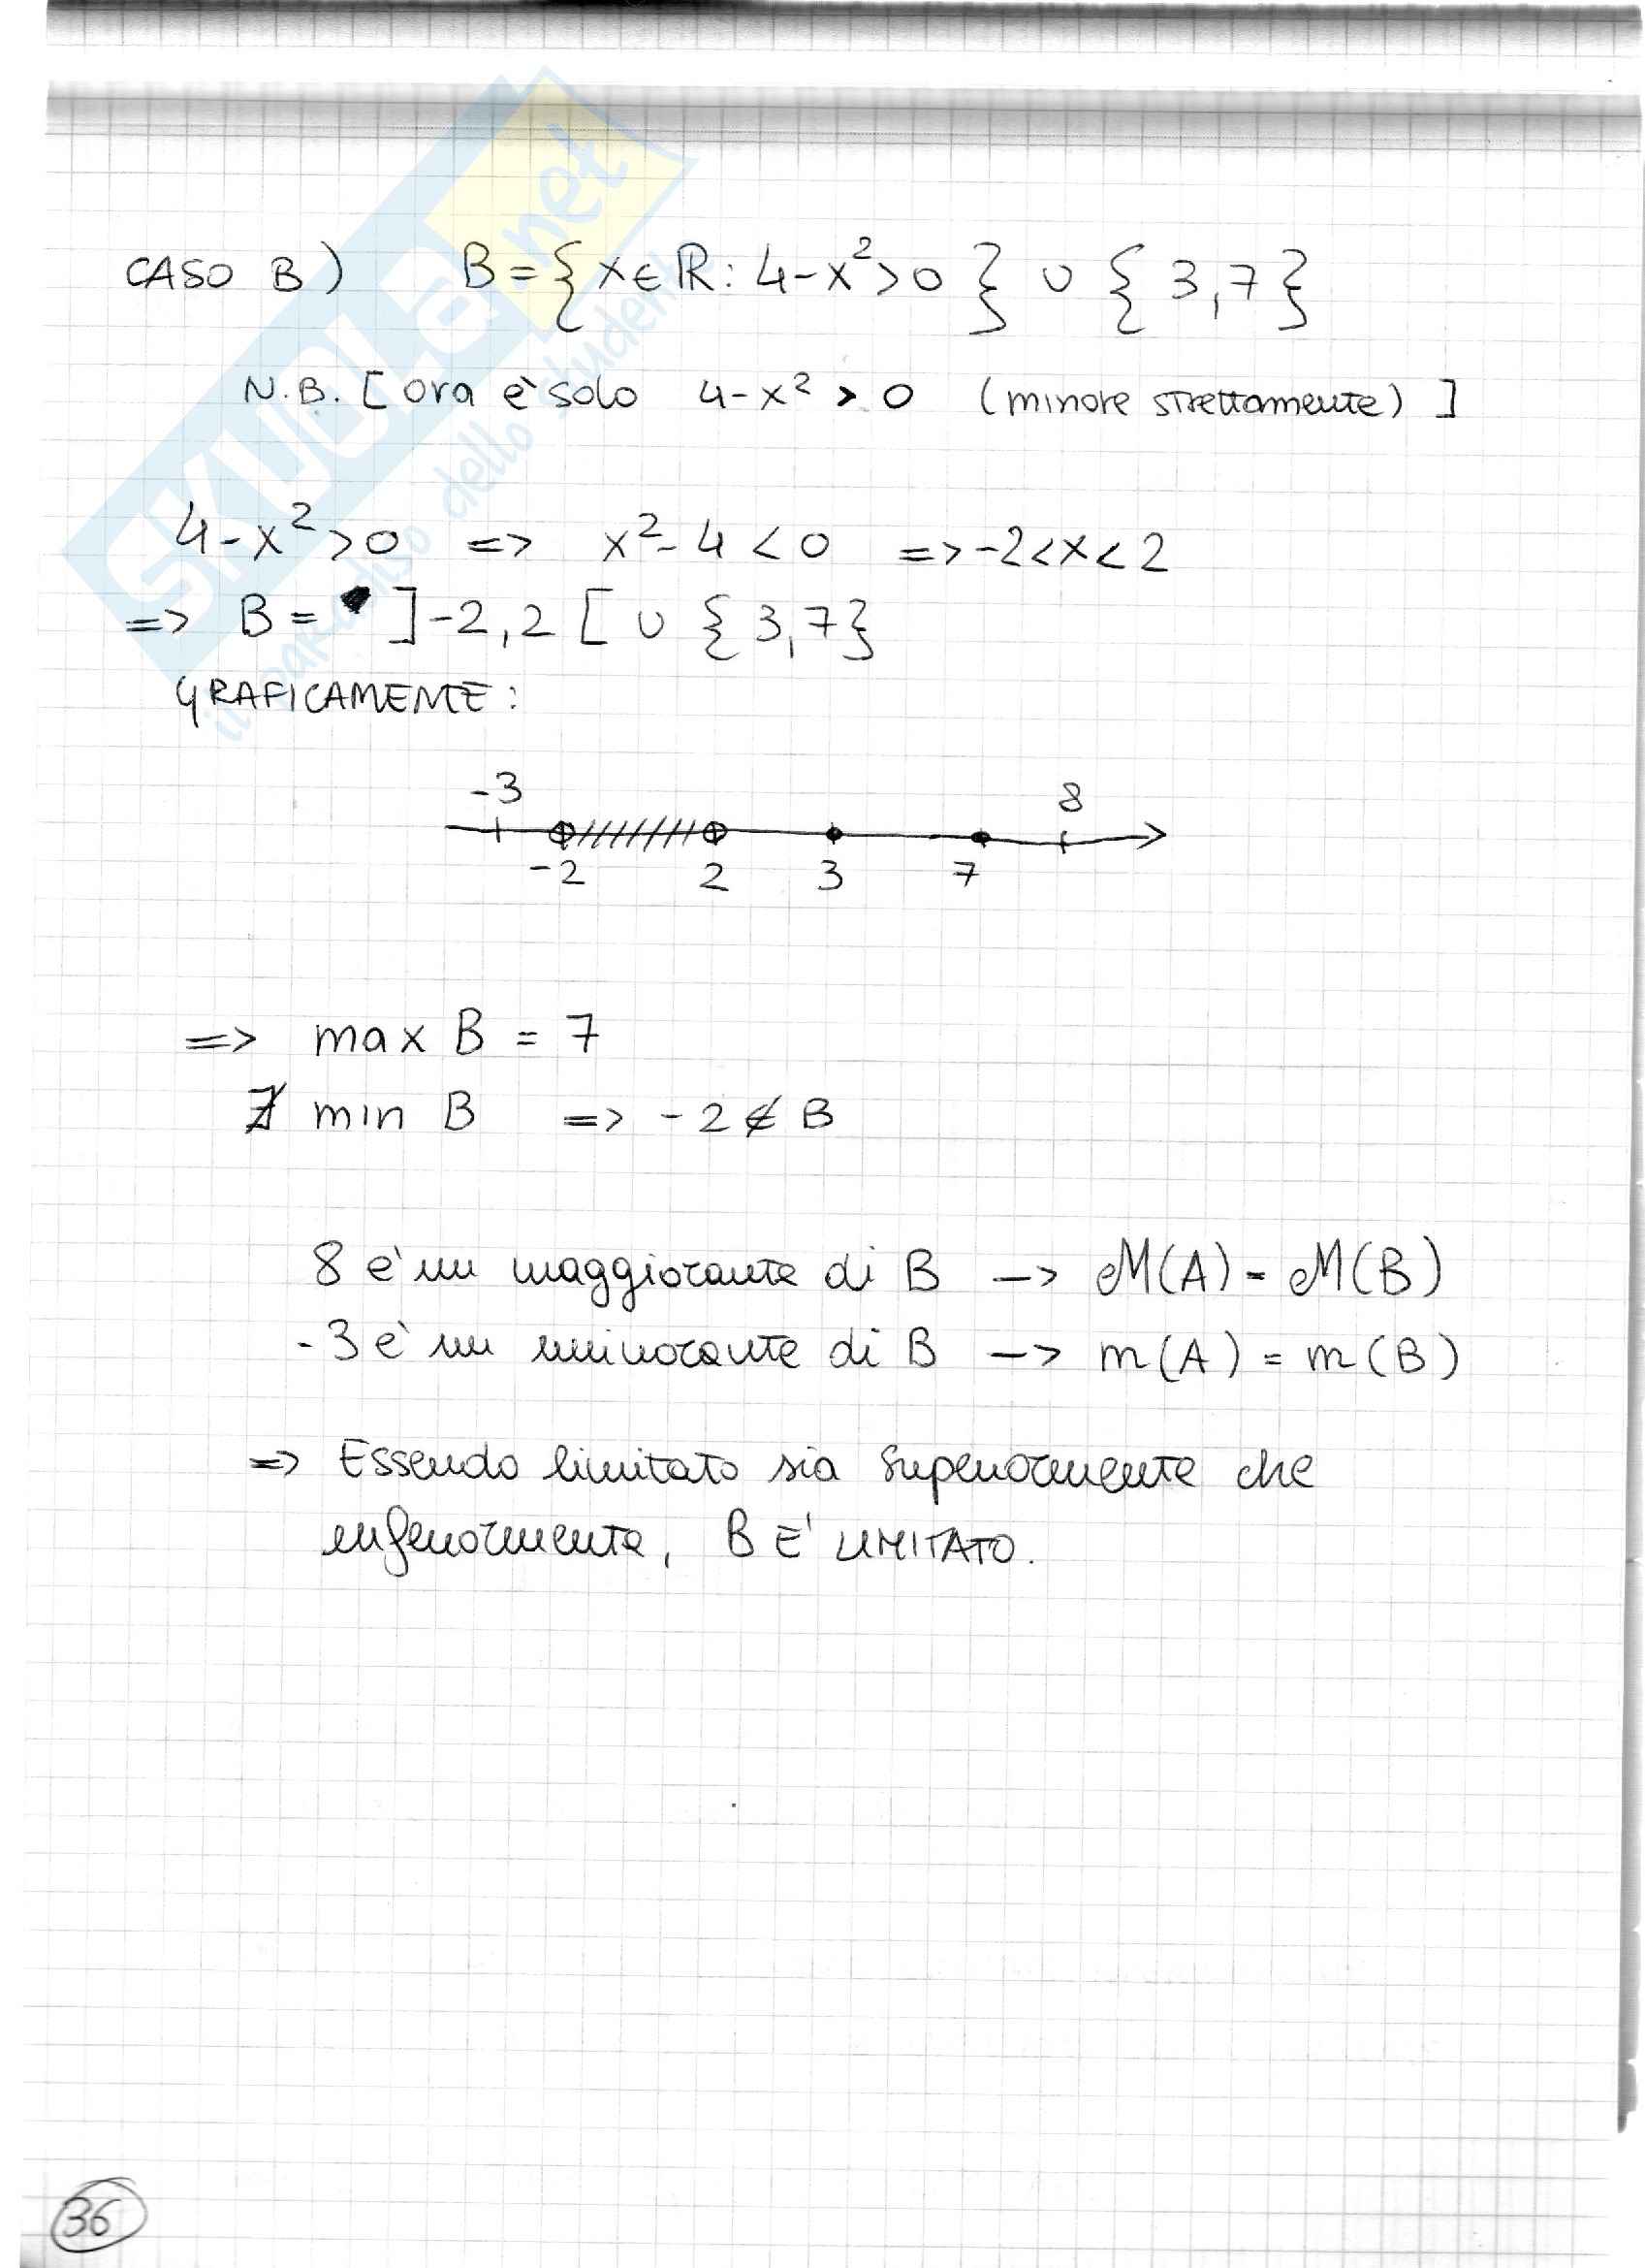 CASO B) B = { x ∈ ℝ : 4-x² > 0 } ∪ { 3,7 }
N.B. [ ora è solo 4-x² > 0 (minore strettamente) ]
4-x² > 0 => x²-4 < 0 => -2 < x < 2
=> B = ]-2,2[ ∪ { 3,7 }
GRAFICAMENTE:
-3 8
-2 2 3 7
=> max B = 7
∄ min B => -2 ∉ B
8 è un maggiorante di B -> M(A) = M(B)
-3 è un minorante di B -> m(A) = m(B)
=> Essendo limitato sia superiormente che
inferiormente, B E' LIMITATO.
36
SKUOLA.net
il paradiso dello studente